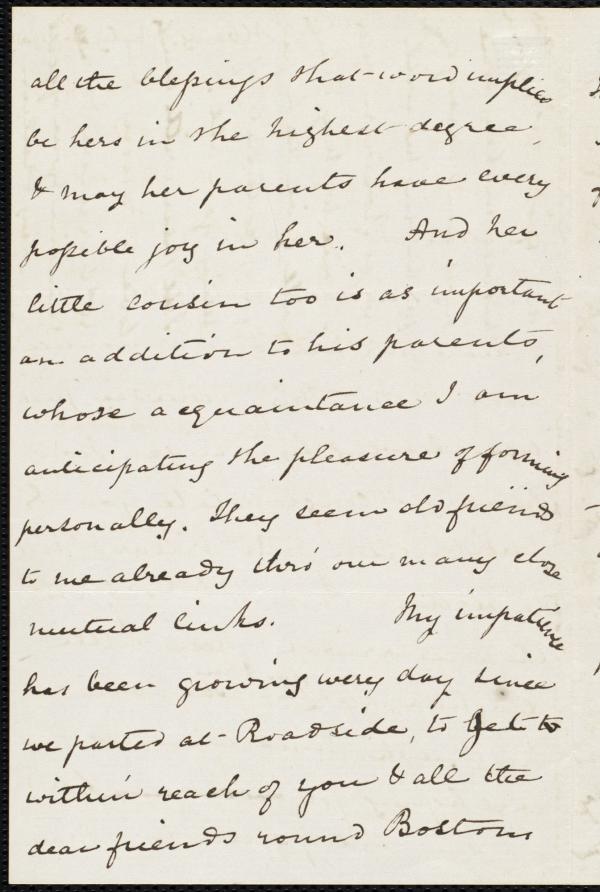 all the blessings that word implies
be hers in the highest degree,
& may her parents have every
possible joy in her. And her
little cousin too is as important
an addition to his parents,
whose acquaintance I am
anticipating the pleasure of forming
personally. They seem old friends
to me already thro' our many close
mutual links. My impatience
has been growing every day since
we parted at Roadside, to get to
within reach of you & all the
dear friends round Boston